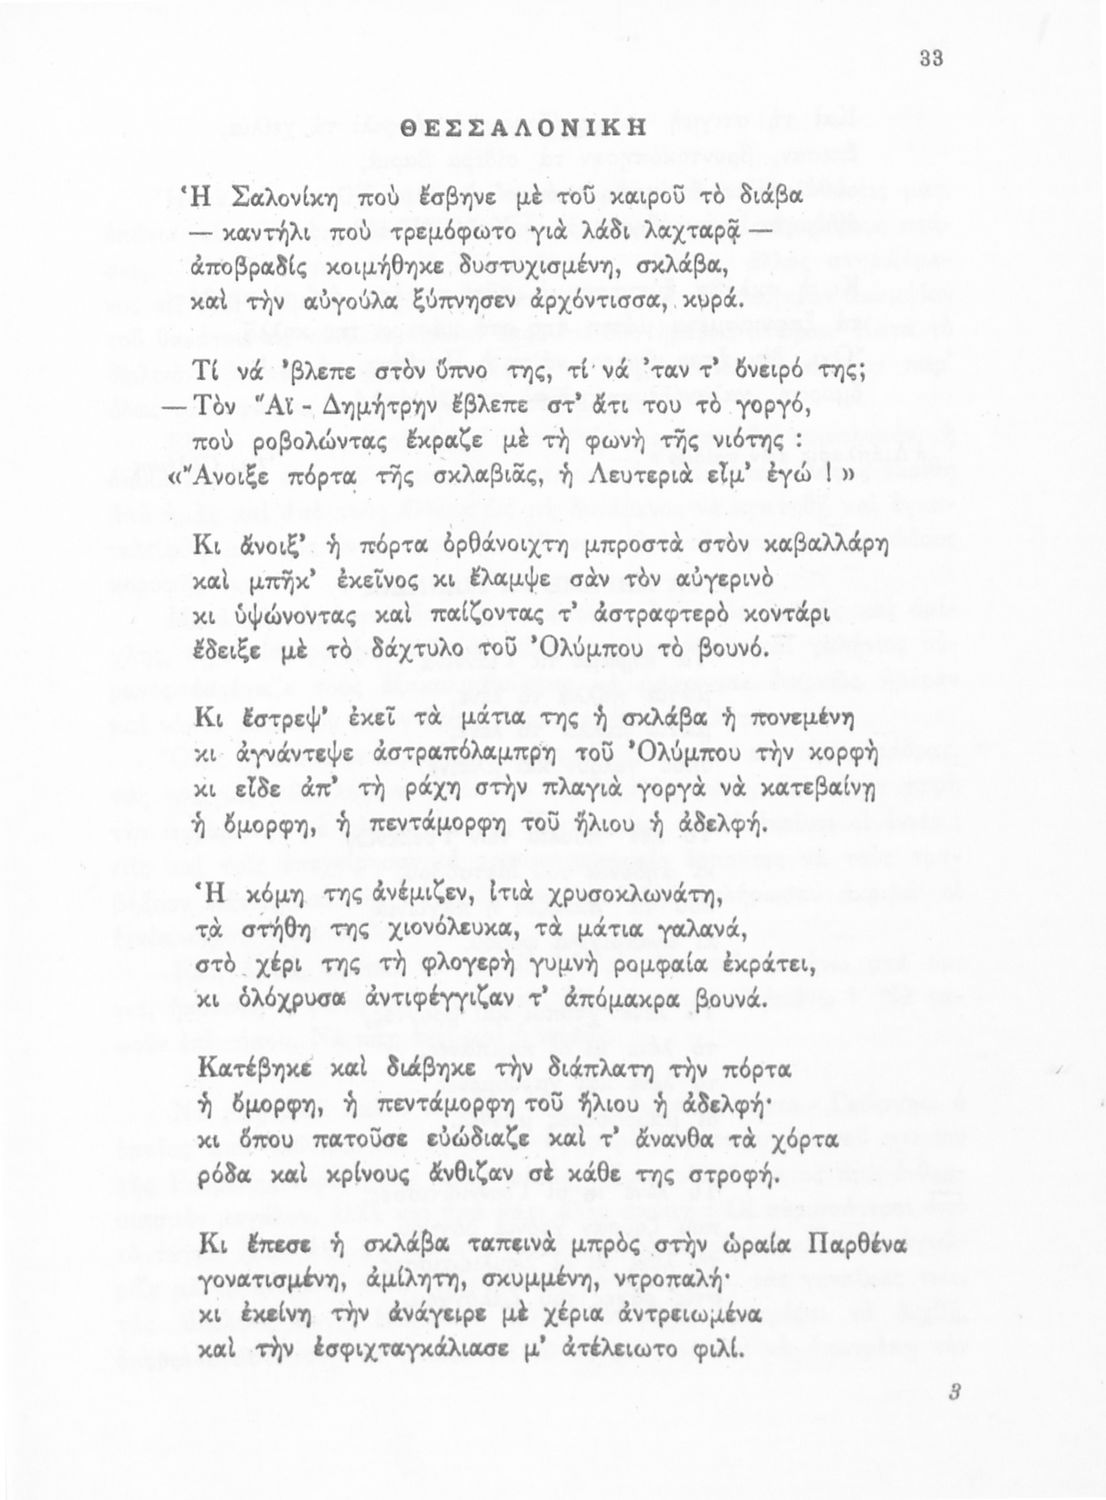 33
ΘΕΣΣΑΛΟΝΙΚΗ
Ἡ Σαλονίκη ποὺ ἔσβηνε μὲ τοῦ καιροῦ τὸ διάβα
— καντήλι ποὺ τρεμόφωτο γιὰ λάδι λαχταρᾷ —
ἀποβραδίς κοιμήθηκε δυστυχισμένη, σκλάβα,
καὶ τὴν αὐγούλα ξύπνησεν ἀρχόντισσα, κυρά.
Τί νά ᾿βλεπε στὸν ὕπνο της, τί νά ᾿ταν τ᾿ ὄνειρό της;
— Τὸν Ἅϊ - Δημήτρην ἔβλεπε στ᾿ ἄτι του τὸ γοργό,
ποὺ ροβολώντας ἔκραζε μὲ τὴ φωνὴ τῆς νιότης :
«Ἄνοιξε πόρτα τῆς σκλαβιᾶς, ἡ Λευτεριὰ εἶμ᾿ ἐγώ ! »
Κι ἄνοιξ᾿ ἡ πόρτα ὀρθάνοιχτη μπροστὰ στὸν καβαλλάρη
καὶ μπῆκ᾿ ἐκεῖνος κι ἔλαμψε σὰν τὸν αὐγερινὸ
κι ὑψώνοντας καὶ παίζοντας τ᾿ ἀστραφτερὸ κοντάρι
ἔδειξε μὲ τὸ δάχτυλο τοῦ Ὀλύμπου τὸ βουνό.
Κι ἔστρεψ᾿ ἐκεῖ τὰ μάτια της ἡ σκλάβα ἡ πονεμένη
κι ἀγνάντεψε ἀστραπόλαμπρη τοῦ Ὀλύμπου τὴν κορφὴ
κι εἶδε ἀπ᾿ τὴ ράχη στὴν πλαγιὰ γοργὰ νὰ κατεβαίνῃ
ἡ ὄμορφη, ἡ πεντάμορφη τοῦ ἥλιου ἡ ἀδελφή.
Ἡ κόμη της ἀνέμιζεν, ἰτιὰ χρυσοκλωνάτη,
τὰ στήθη της χιονόλευκα, τὰ μάτια γαλανά,
στὸ χέρι της τὴ φλογερὴ γυμνὴ ρομφαία ἐκράτει,
κι ὁλόχρυσα ἀντιφέγγιζαν τ᾿ ἀπόμακρα βουνά.
Κατέβηκε καὶ διάβηκε τὴν διάπλατη τὴν πόρτα
ἡ ὄμορφη, ἡ πεντάμορφη τοῦ ἥλιου ἡ ἀδελφή·
κι ὅπου πατοῦσε εὐώδιαζε καὶ τ᾿ ἄνανθα τὰ χόρτα
ρόδα καὶ κρίνους ἄνθιζαν σὲ κάθε της στροφή.
Κι ἔπεσε ἡ σκλάβα ταπεινὰ μπρὸς στὴν ὡραία Παρθένα
γονατισμένη, ἀμίλητη, σκυμμένη, ντροπαλή·
κι ἐκείνη τὴν ἀνάγειρε μὲ χέρια ἀντρειωμένα
καὶ τὴν ἐσφιχταγκάλιασε μ᾿ ἀτέλειωτο φιλί.
3